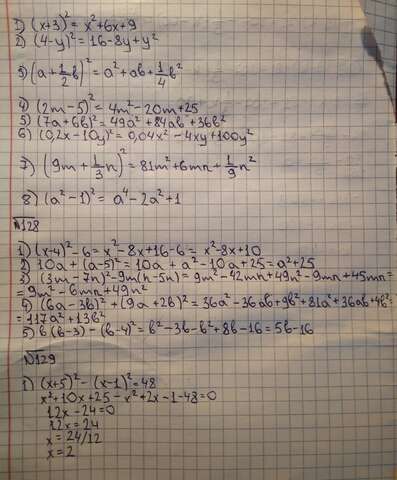 1) (x+3)² = x²+6x+9
2) (4-y)² = 16-8y+y²
3) (a+1/2b)² = a²+ab+1/4b²
4) (2m-5)² = 4m²-20m+25
5) (7a+6b)² = 49a²+84ab+36b²
6) (0,2x-10y)² = 0,04x²-4xy+100y²
7) (9m+1/3n)² = 81m²+6mn+1/9n²
8) (a²-1)² = a⁴-2a²+1
№128
1) (x-4)²-6 = x²-8x+16-6 = x²-8x+10
2) 10a+(a-5)² = 10a+a²-10a+25 = a²+25
3) (3m-7n)²-9m(n-5n) = 9m²-42mn+49n²-9mn+45mn =
= 9m²-6mn+49n²
4) (6a-3b)²+(9a+2b)² = 36a²-36ab+9b²+81a²+36ab+4b² =
= 117a²+13b²
5) b(b-3)-(b-4)² = b²-3b-b²+8b-16 = 5b-16
№129
1) (x+5)²-(x-1)² = 48
x²+10x+25-x²+2x-1-48=0
12x-24=0
12x=24
x=24/12
x=2